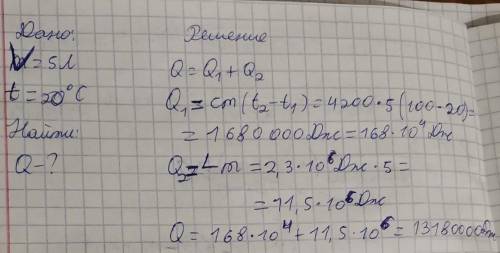 Дано:
V = 5 л
t = 20°C
Найти:
Q - ?
Решение
Q = Q₁ + Q₂
Q₁ = cm(t₂-t₁) = 4200·5(100-20)=
= 1680000Дж = 168·10⁴ Дж
Q₂ = Lm = 2,3·10⁶ Дж·5 =
= 11,5·10⁶ Дж
Q = 168·10⁴ + 11,5·10⁶ = 13180000Дж